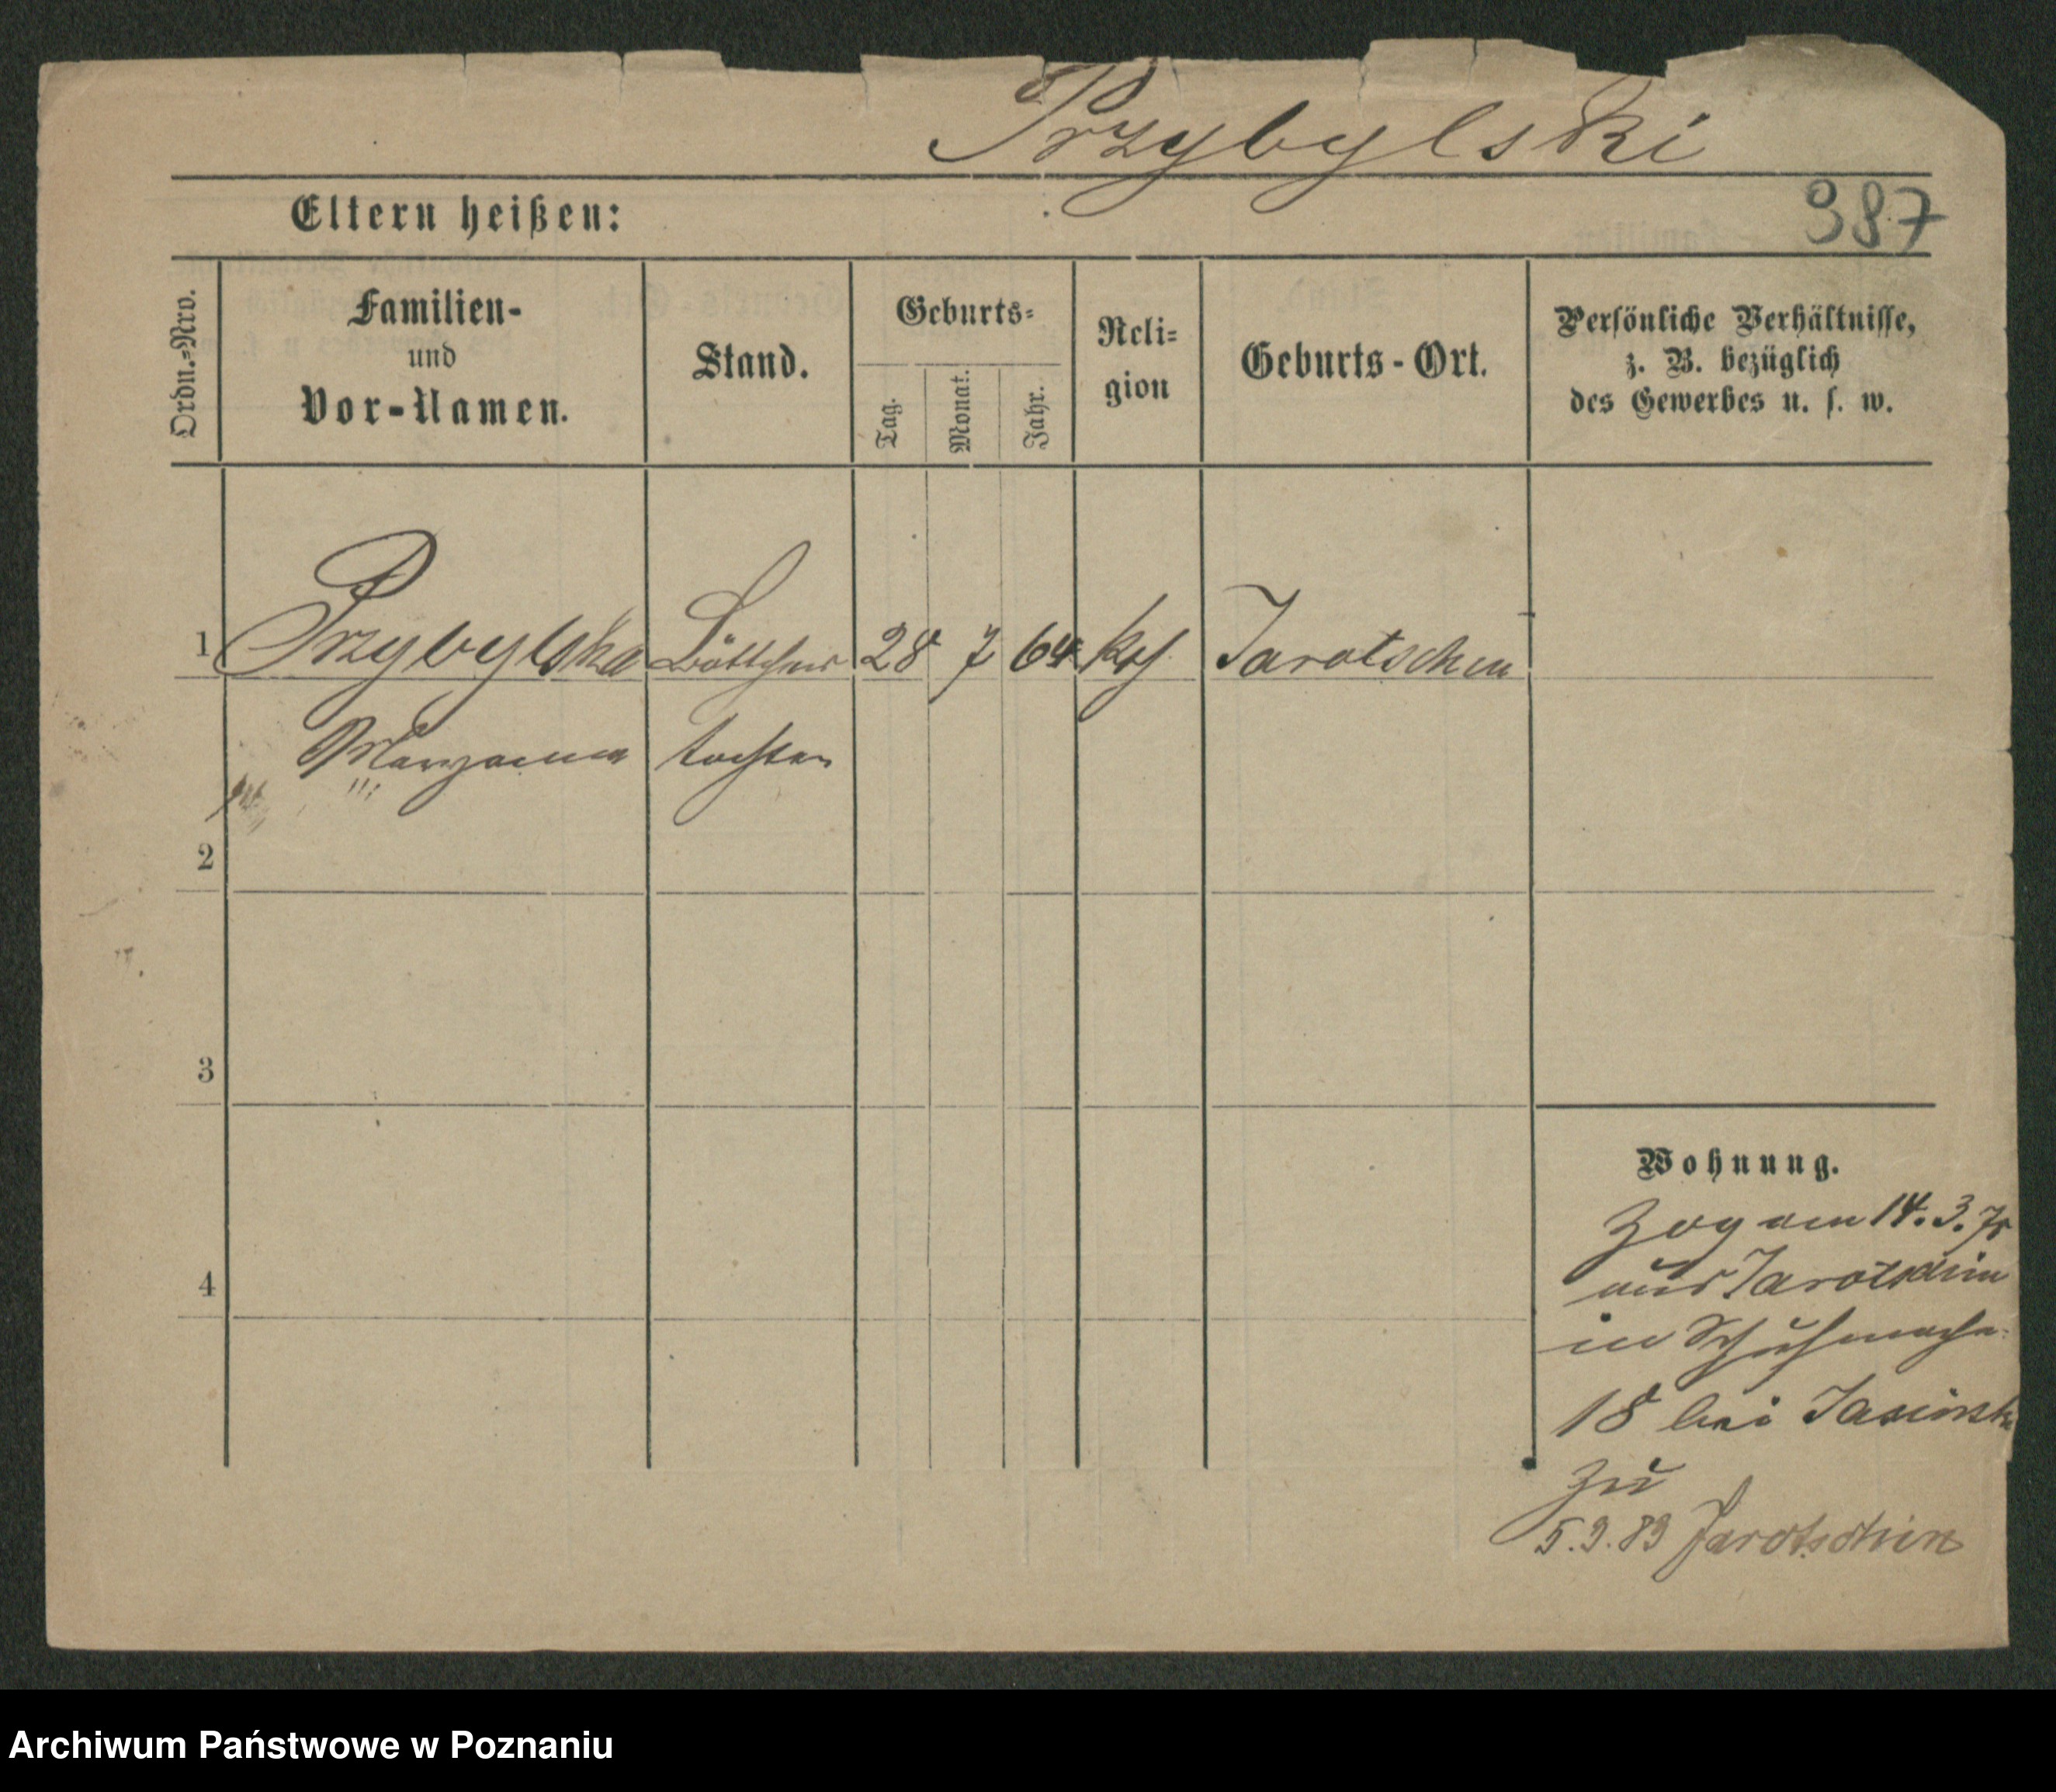 Przybylski
387
Eltern heißen:
Ordn.-Nro.
Familien-
und
Vor-Namen.
Stand.
Geburts-
Tag.
Monat.
Jahr.
Reli-
gion
Geburts-Ort.
Persönliche Verhältnisse,
z. B. bezüglich
des Gewerbes u. s. w.
1 Przybylska Böttcher 28 7 64 kth Jarotschin
Maryanna tochter
2
3
4
Wohnung.
Zog am 14. 3.
aus Jarotschin
in Schuhmacher
18 bei Jasinski
zu
5. 9. 89 Jarotschin
Archiwum Państwowe w Poznaniu